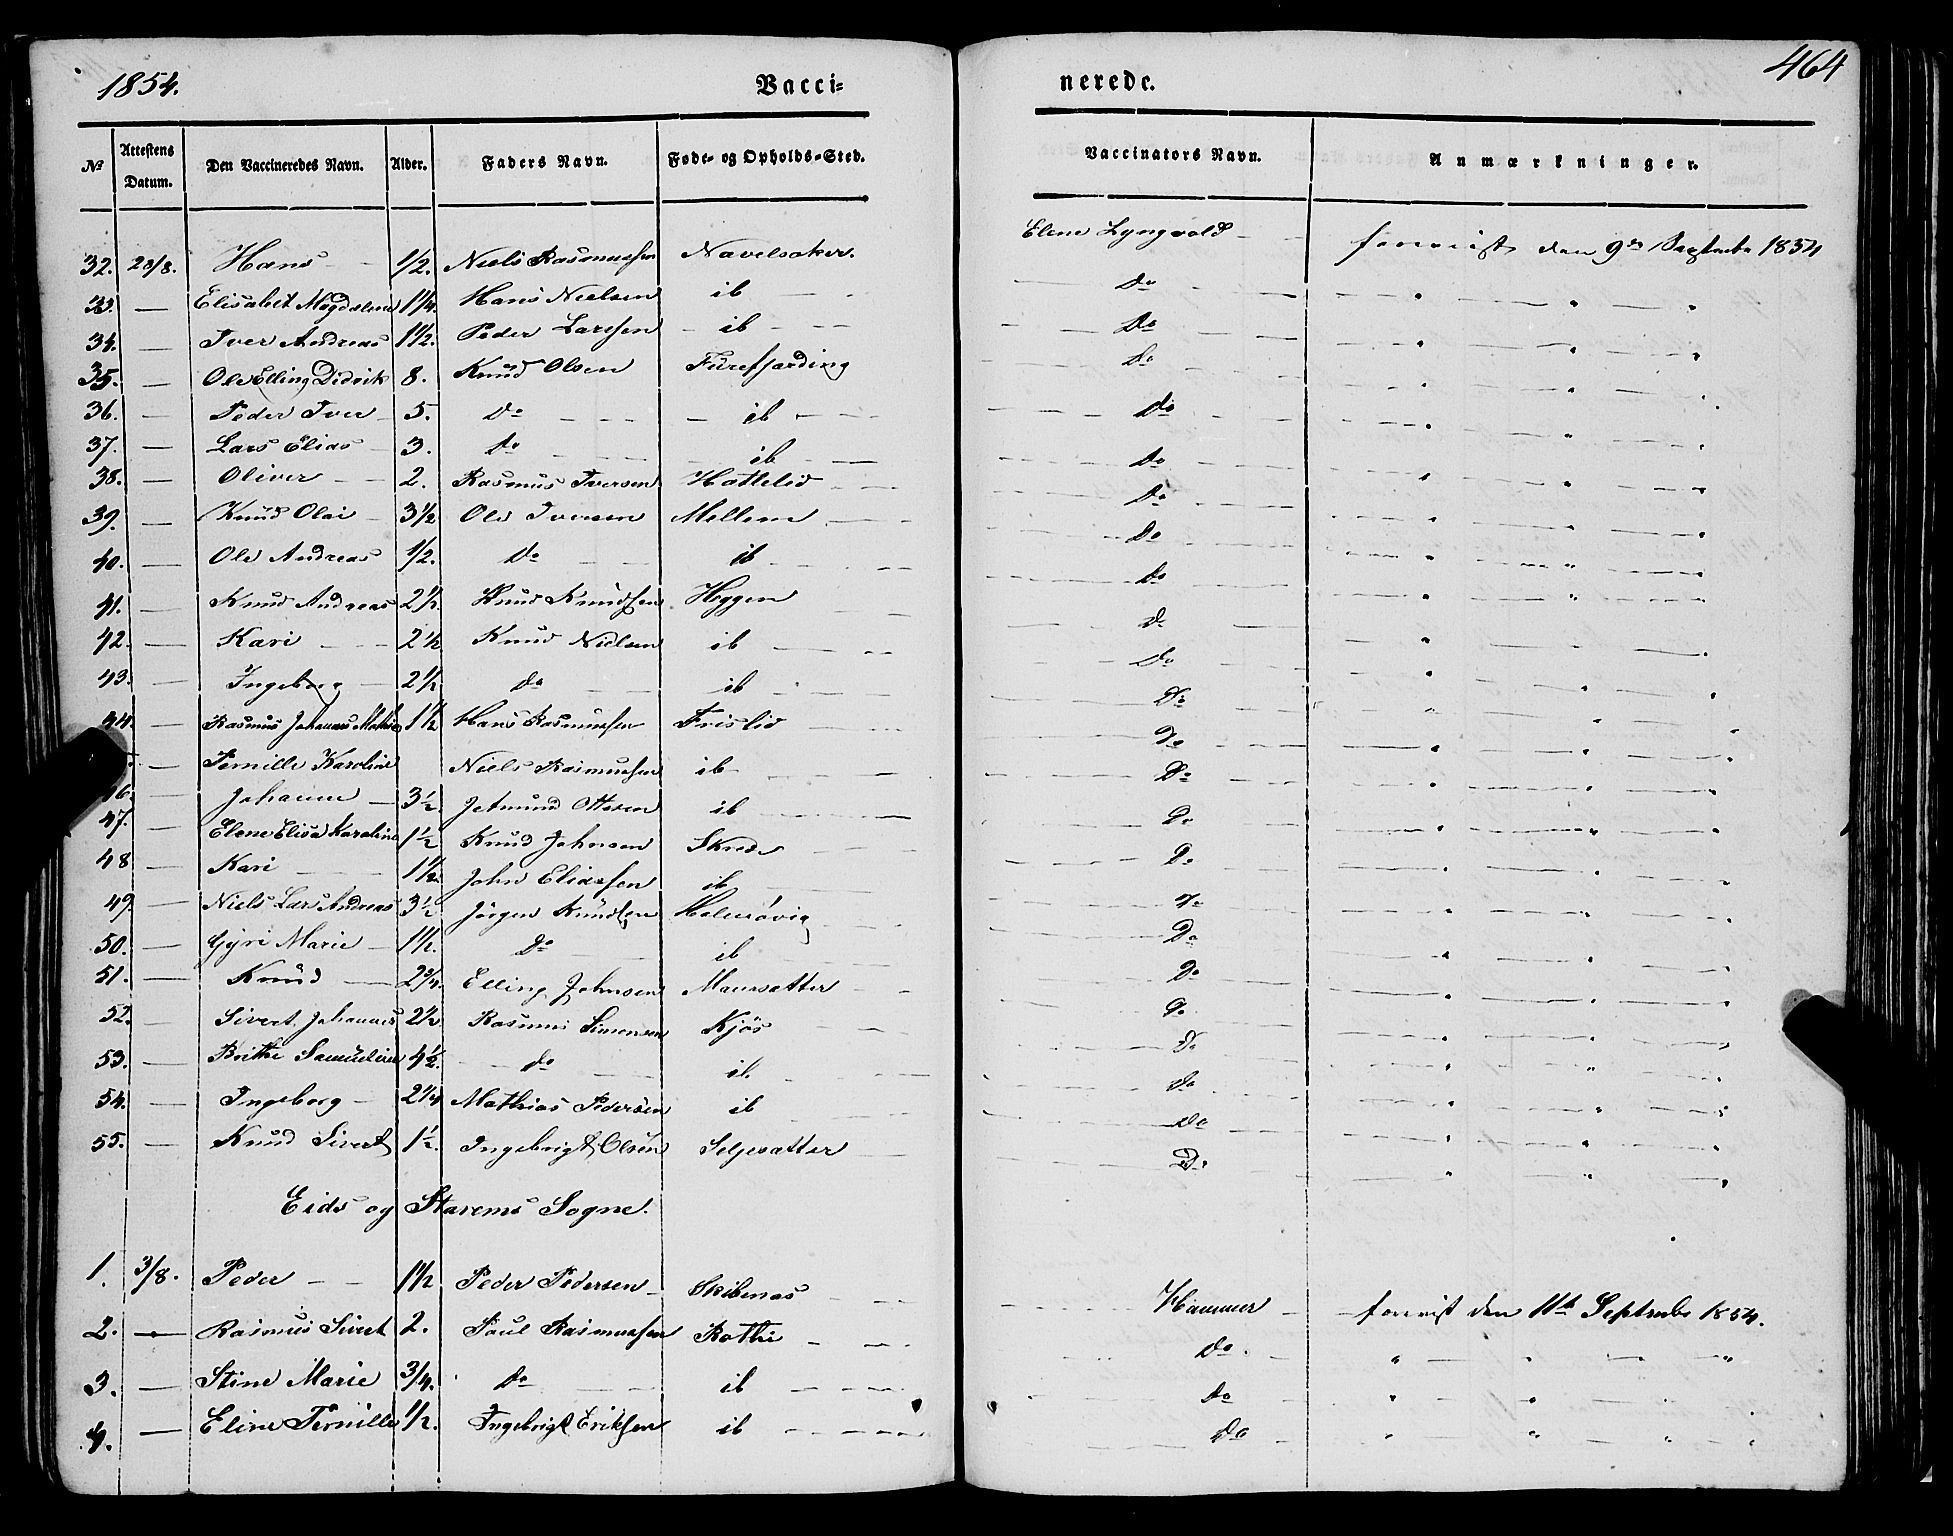 1854. Vacci= nerede. 464
No Attestens Datum. Den Vaccineredes Navn. Alder. Faders Navn. Føde- og Opholds-Sted. Vaccinators Navn. Anmærkninger.
32. 23/8. Hans 1/2. Niels Rasmussen Navelsaker. Elene Lyngvold forevist den 9de Septembr 1854
33. — Elisabet Magdalene 1 1/4. Hans Nielsen ib Do " " "
34. — Iver Andreas 1 1/2. Peder Larssen ib Do " " "
35. — Ole Elling Didrik 8. Knud Olsen Furefjærding Do " " "
36. — Peder Iver 5. Do ib Do " " "
37. — Lars Elias 3. do ib Do " " "
38. — Oliver 2. Rasmus Iversen Hattelid Do " " "
39. — Knud Olai 3 1/2 Ole Iversen Mellem Do " " "
40. — Ole Andreas 1/2. Do ib Do " " "
41. — Knud Andreas 2 1/2. Knud Knudsen Heggen D- " " "
42. — Kari 2 1/2 Knud Nielsen ib Do " " "
43. — Ingeborg 2 1/2 do ib Do " " "
44. — Rasmus Johannes Mathias 1 1/2 Hans Rasmussen Frislid Do " " "
— Pernille Karoline Niels Rasmussen ib Do " " "
46. — Johanne 3 1/2 Jetmund Ottesen ib Do " " "
47. — Elene Elisa Karoline 1 1/2 Knud Johnsen Skrede Do " " "
48 — Kari 1 1/2. John Eliassen ib Do " " "
49. — Niels Lars Andreas 3 1/2 Jørgen Knudsen Holmøvig Do " " "
50. — Gyri Marie 1 1/2. Do ib Do " " "
51. — Knud 2 3/4. Elling Johnsen Maursætter Do " " "
52. — Sivert Johannes 2 1/2 Rasmus Simensen Kjøs Do " " "
53. — Brithe Samueline 4 1/2. do ib. Do " " "
54. — Ingeborg 2 1/4 Mathias Pedersen ib Do " " "
55. — Knud Sivert 1 1/2. Ingebrigt Olsen Seljesætter Do " " "
Eids og Starems Sogne.
1. 3/8. Peder 1 1/2 Peder Pedersen Skibenæs Hammer forevist den 11te Septembr 1854.
2. — Rasmus Sivert 2. Paul Rasmussen Rothe do " " "
3. — Stine Marie 3/4. do ib do " " "
4. — Eline Pernille 1/2. Ingebrigt Eriksen ib do " " "